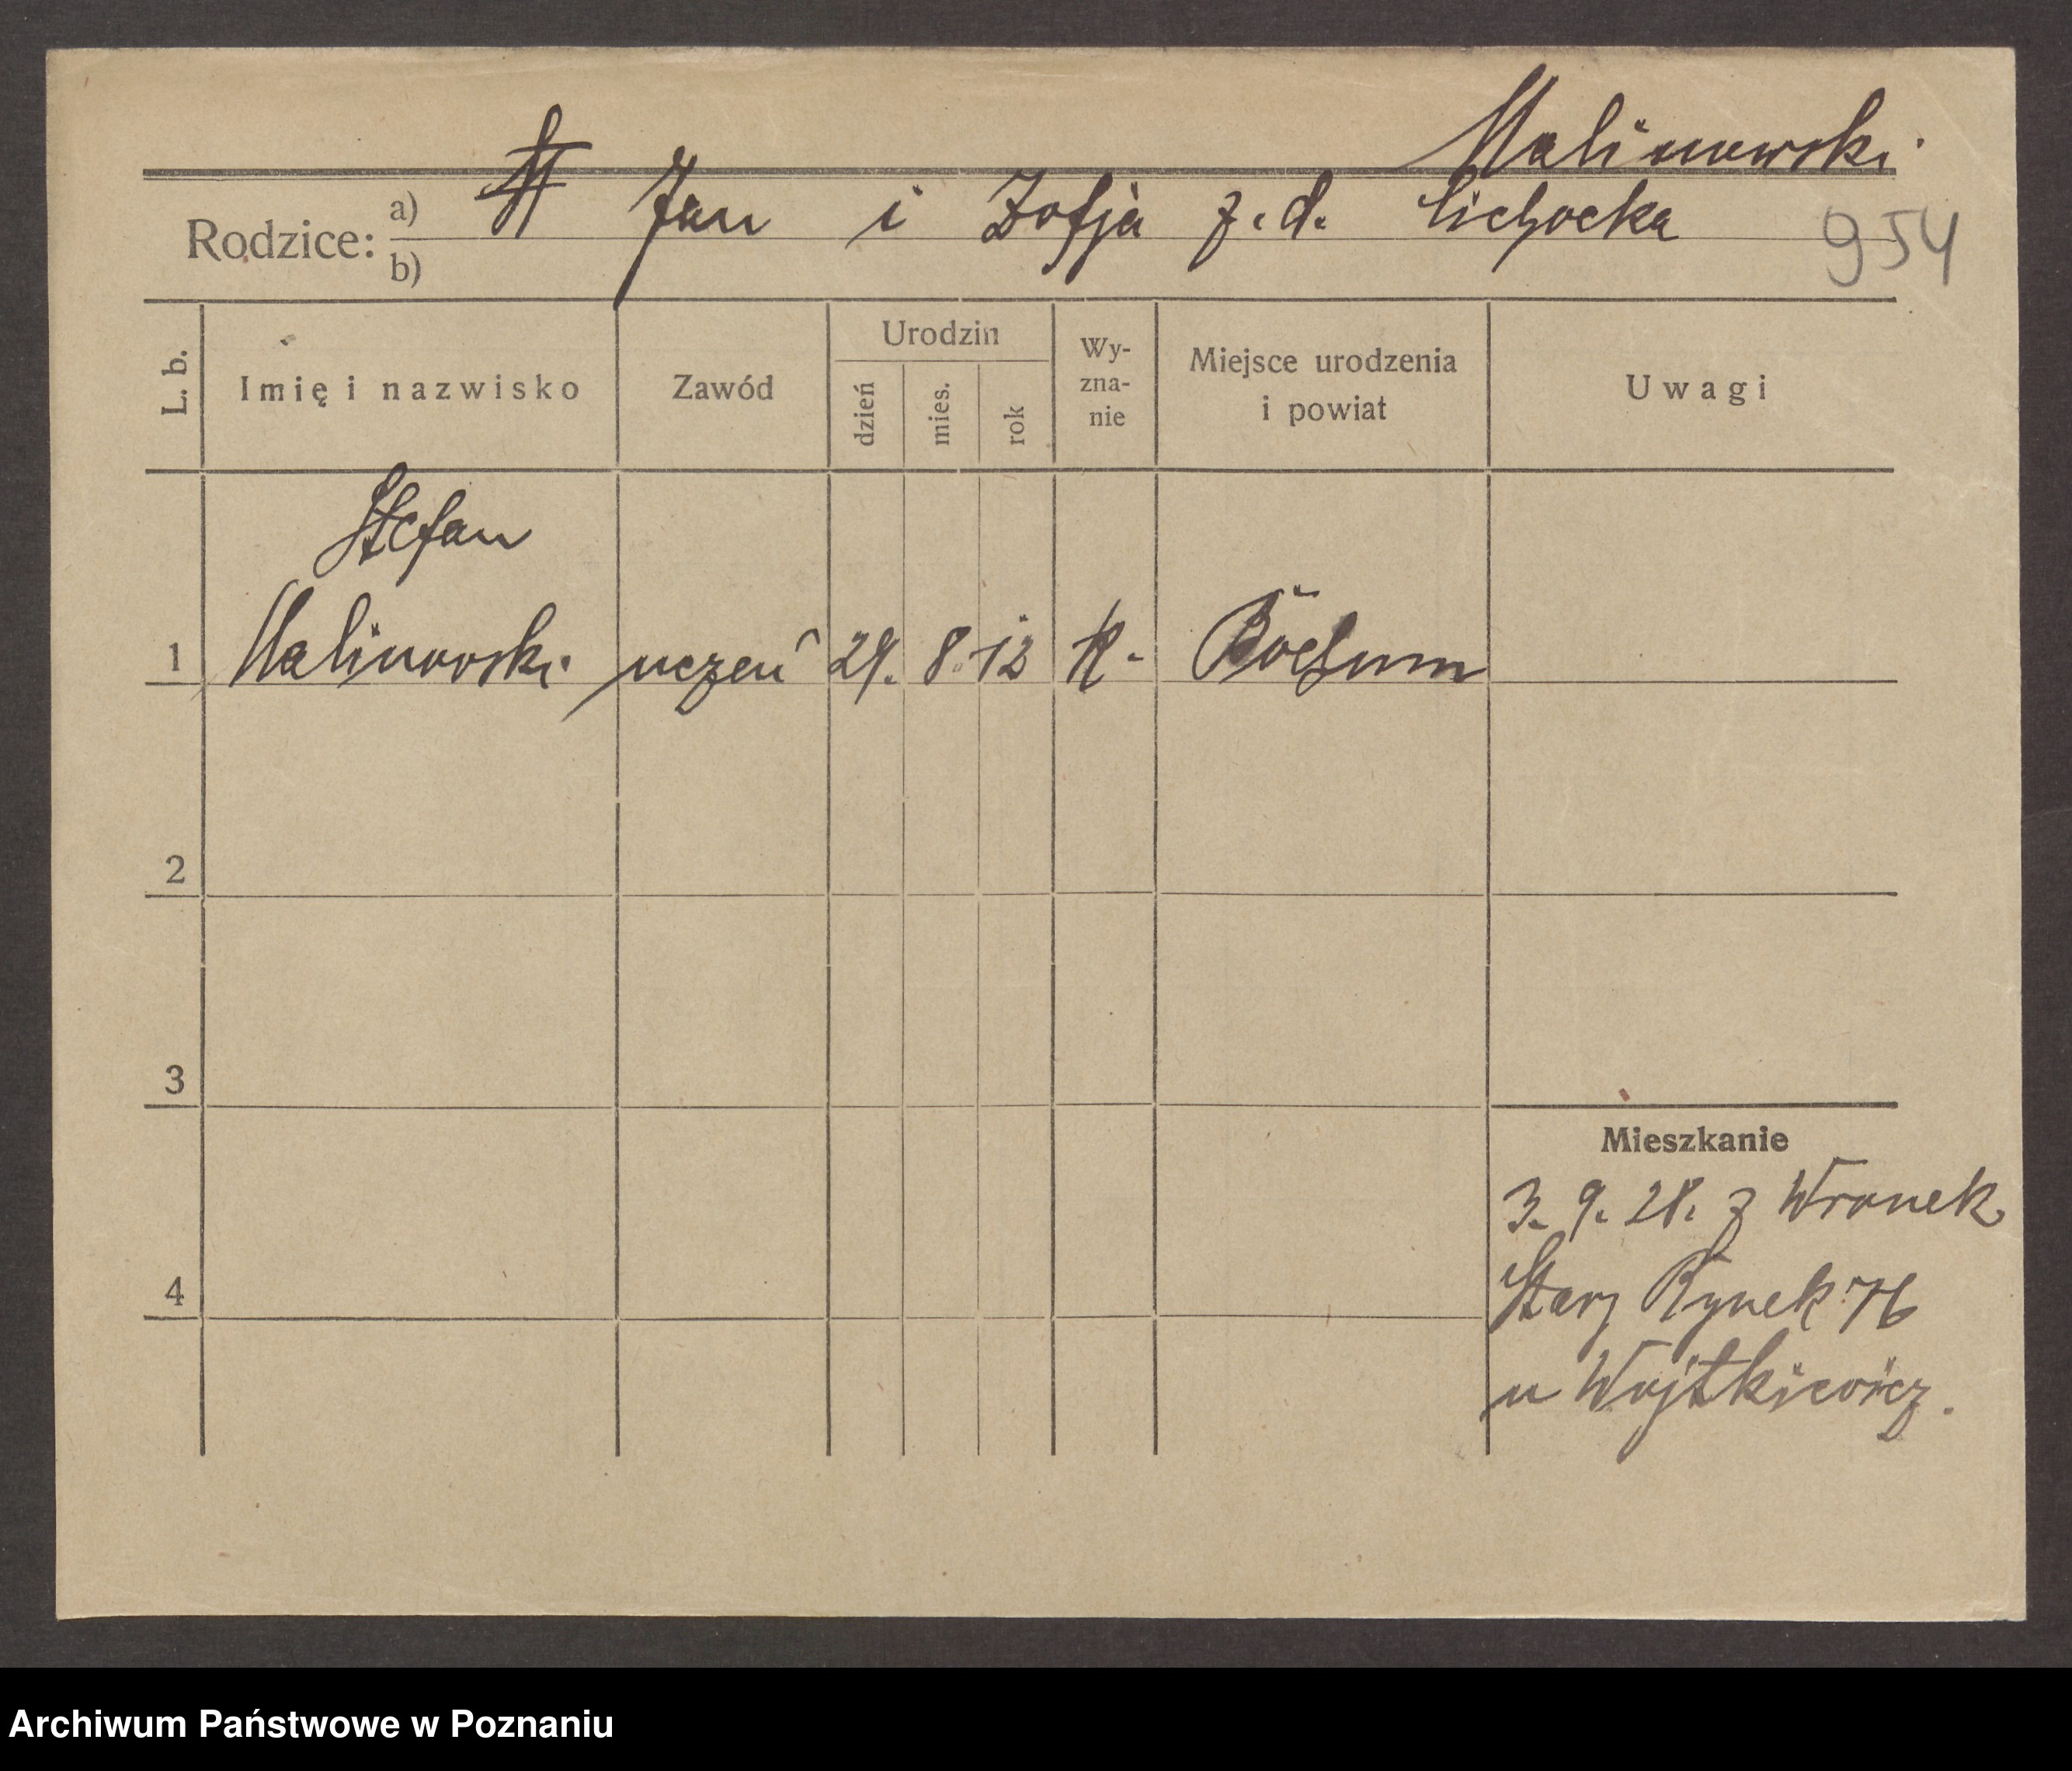 Malinowski
Rodzice: a) Jan i Zofja z. d. Cichocka
b)
954
L. b.
Imię i nazwisko
Zawód
Urodzin
dzień
mies.
rok
Wy-
zna-
nie
Miejsce urodzenia
i powiat
Uwagi
Stefan
1 Malinowski uczeń 29. 8. 12 K. Bochum
2
3
4
Mieszkanie
3. 9. 28. z Wronek
Stary Rynek 76
u Wojtkiewicz.
Archiwum Państwowe w Poznaniu